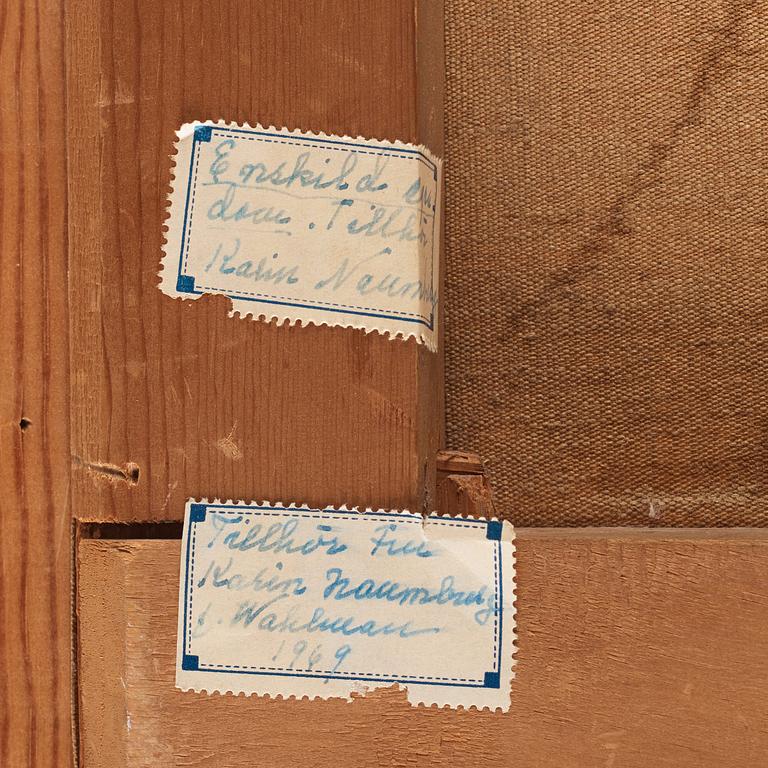 Enskild egen
dom. Tillhör
Karin Naumburg
Tillhör Fru
Karin Naumburg
f. Wahlman
1969